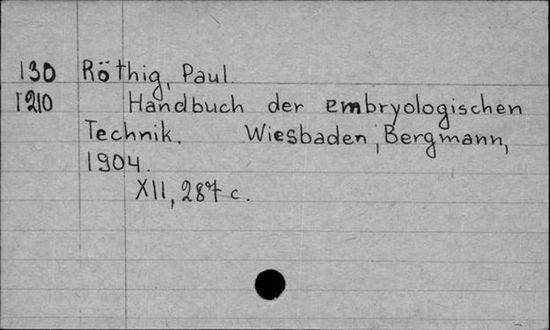 130 Röthig, Paul.
1210 Handbuch der embryologischen
Technik. Wiesbaden, Bergmann,
1904.
XII, 287 c.